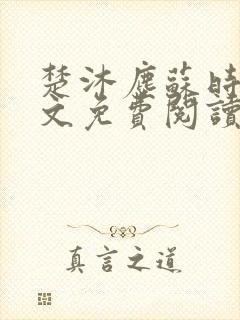 楚沐塵蘇時
文免費閱讀
真言之道